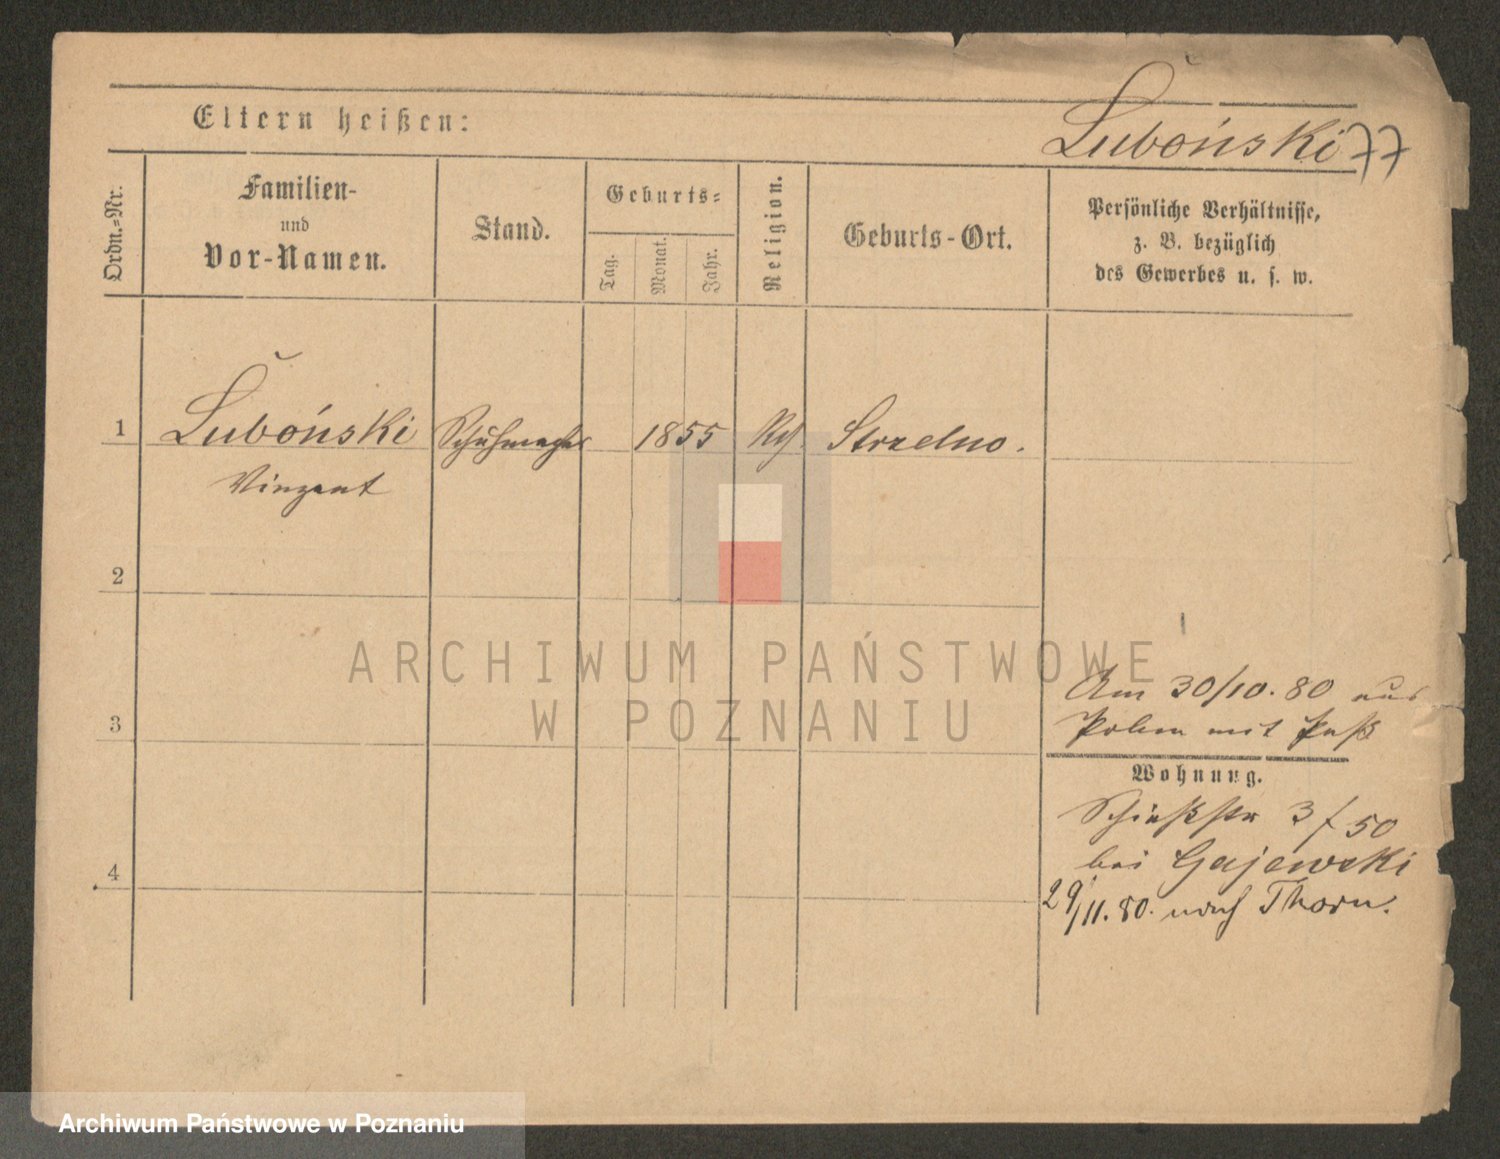 Eltern heißen:
Łuboński 77
Ordn.-Nr.
Familien-
und
Vor-Namen.
Stand.
Geburts-
Tag.
Monat.
Jahr.
Religion.
Geburts-Ort.
Persönliche Verhältnisse,
z. B. bezüglich
des Gewerbes u. s. w.
1 Łuboński Schuhmacher 1855 Strzelno.
Vinzent
2
3
4
Am 30/10. 80 aus
Polen mit Paß
Wohnung.
Schießstr 3 / 50
bei Gajewski
29/11. 80. nach Thorn.
ARCHIWUM PAŃSTWOWE
W POZNANIU
Archiwum Państwowe w Poznaniu